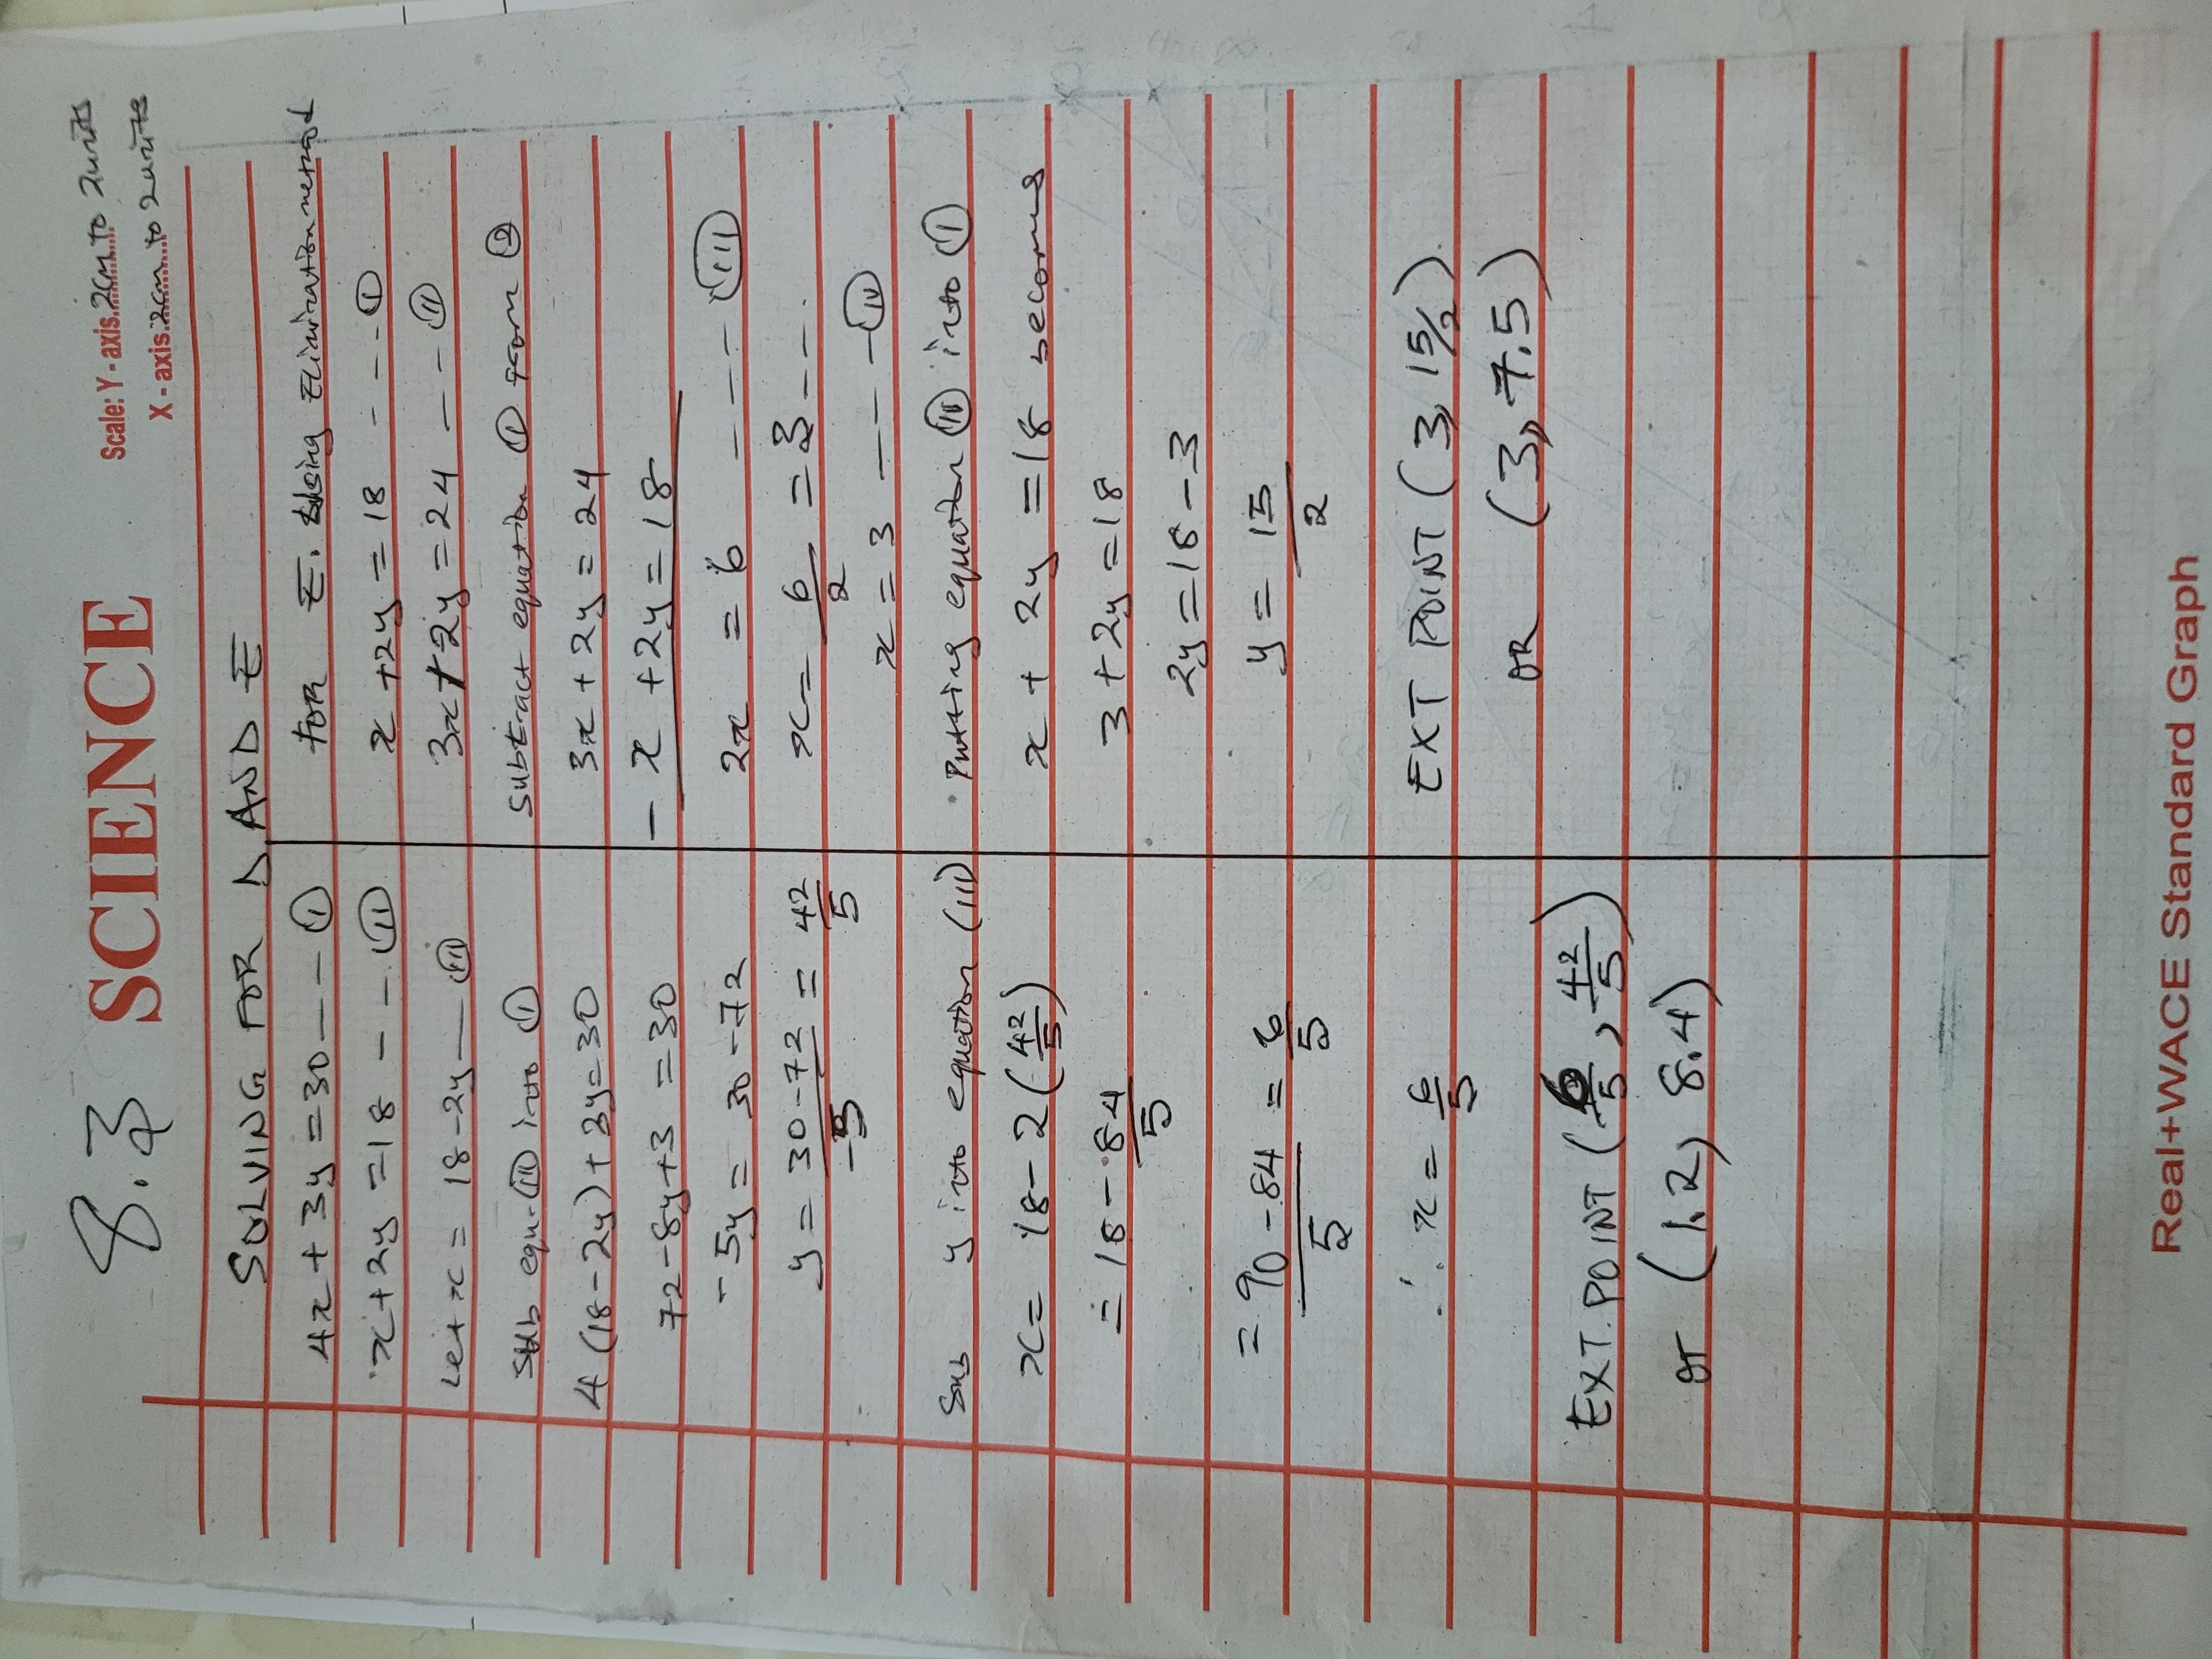 8.3 SCIENCE
Scale: Y - axis 2cm to 2units
X - axis 2cm to 2units
SOLVING FOR D AND E
4x + 3y = 30 -- (I)
x + 2y = 18 -- (II)
Let x = 18 - 2y — (III)
Sub equ- (III) into (I)
4 (18 - 2y) + 3y = 30
72 - 8y + 3 = 30
-5y = 30 - 72
y = 30 - 72 / -5 = 42 / 5
Sub y into equation (III)
x = 18 - 2 (42/5)
= 18 - 84/5
= 90 - 84 / 5 = 6/5
∴ x = 6/5
EXT. POINT (6/5, 42/5)
or (1.2, 8.4)
FOR E. Using Elimination method
x + 2y = 18 --- (I)
3x + 2y = 24 -- (II)
Subtract equation (1) from (2)
3x + 2y = 24
- x + 2y = 18
2x = 6 --- (III)
x = 6/2 = 3 ---
x = 3 --- (IV)
Putting equation (IV) into (I)
x + 2y = 18 becomes
3 + 2y = 18
2y = 18 - 3
y = 15/2
EXT POINT (3, 15/2).
OR (3, 7.5)
Real+WACE Standard Graph